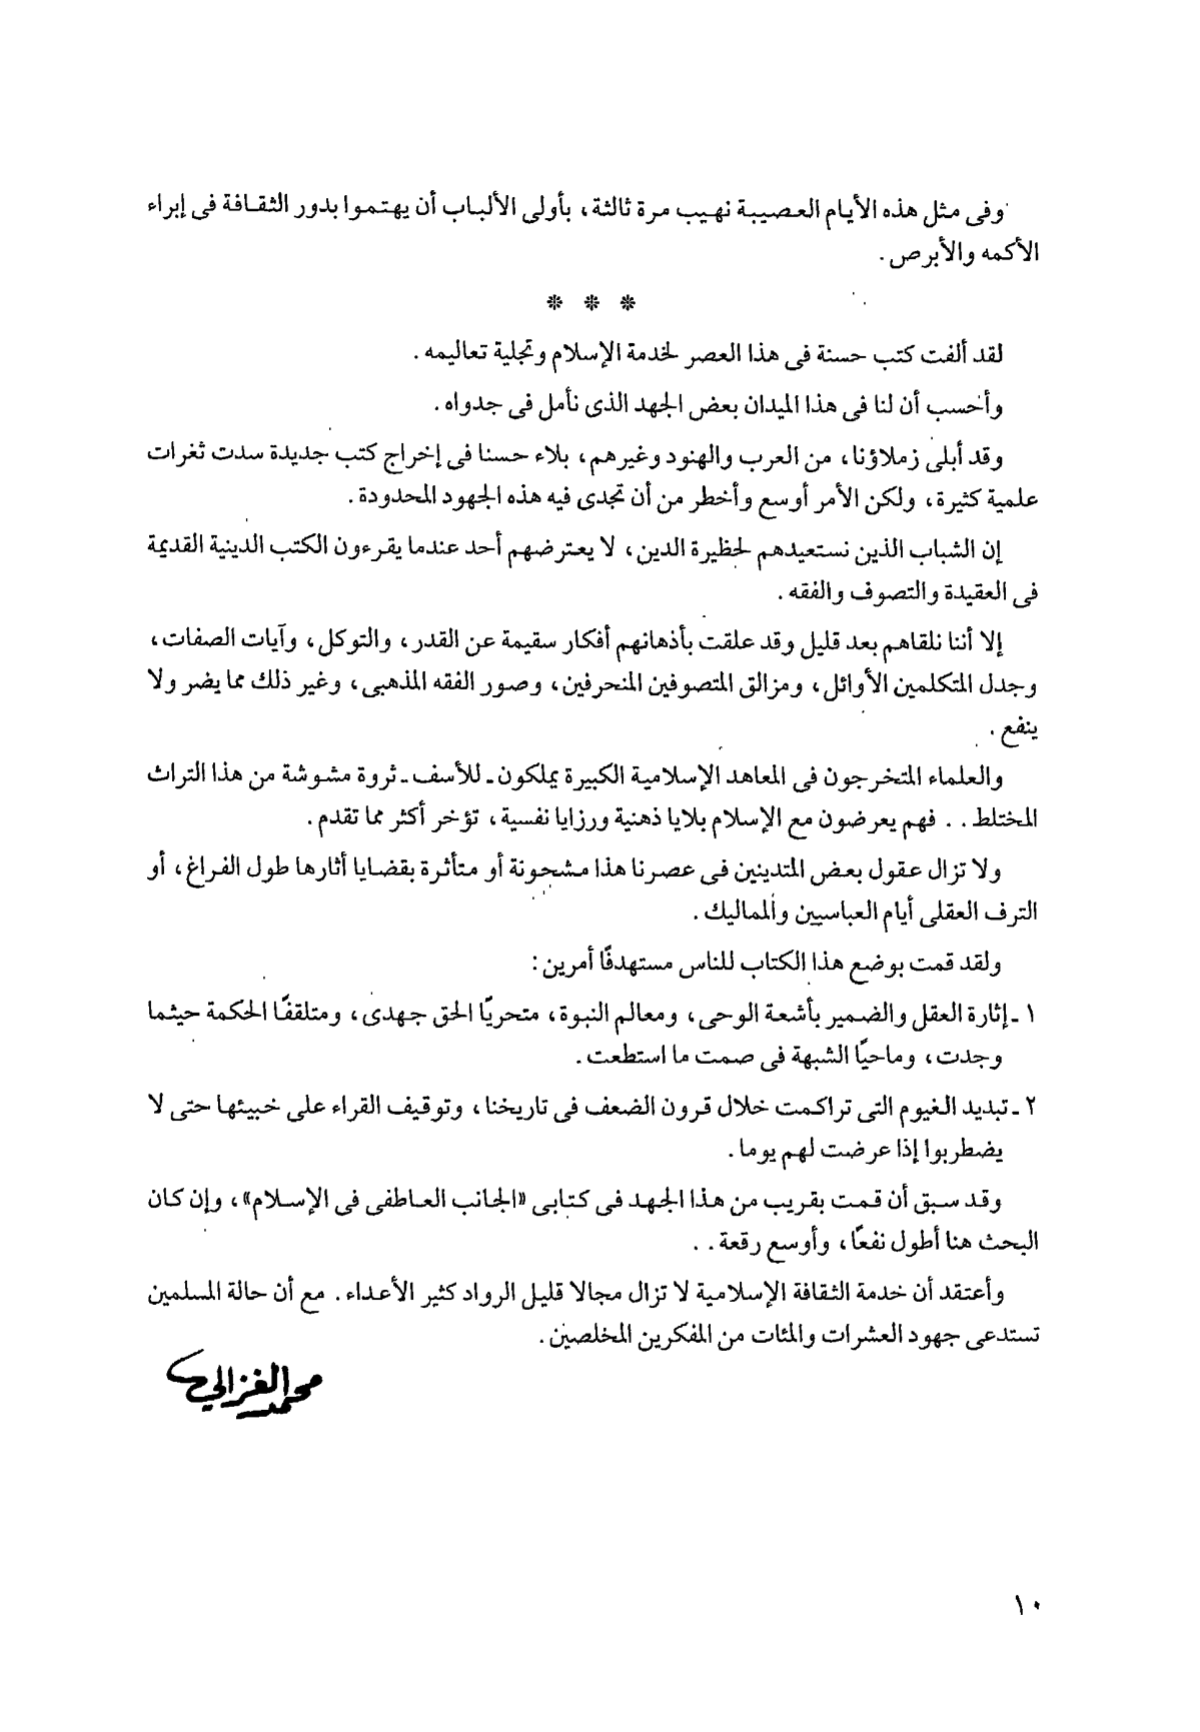 وفى مثل هذه الأيام العصيبة نهيب مرة ثالثة، بأولى الألباب أن يهتموا بدور الثقافة فى إبراء
الأكمه والأبرص .
* * *
لقد ألفت كتب حسنة فى هذا العصر لخدمة الإسلام وتجلية تعاليمه .
وأحسب أن لنا فى هذا الميدان بعض الجهد الذى نأمل فى جدواه .
وقد أبلى زملاؤنا، من العرب والهنود وغيرهم، بلاء حسنا فى إخراج كتب جديدة سدت ثغرات
علمية كثيرة، ولكن الأمر أوسع وأخطر من أن تجدى فيه هذه الجهود المحدودة .
إن الشباب الذين نستعيدهم لحظيرة الدين، لا يعترضهم أحد عندما يقرءون الكتب الدينية القديمة
فى العقيدة والتصوف والفقه .
إلا أننا نلقاهم بعد قليل وقد علقت بأذهانهم أفكار سقيمة عن القدر، والتوكل، وآيات الصفات،
وجدل المتكلمين الأوائل، ومزالق المتصوفين المنحرفين، وصور الفقه المذهبى، وغير ذلك مما يضر ولا
ينفع .
والعلماء المتخرجون فى المعاهد الإسلامية الكبيرة يملكون ـ للأسف ـ ثروة مشوشة من هذا التراث
المختلط . . فهم يعرضون مع الإسلام بلايا ذهنية ورزايا نفسية، تؤخر أكثر مما تقدم .
ولا تزال عقول بعض المتدينين فى عصرنا هذا مشحونة أو متأثرة بقضايا أثارها طول الفراغ، أو
الترف العقلى أيام العباسيين والمماليك .
ولقد قمت بوضع هذا الكتاب للناس مستهدفًا أمرين :
١ ـ إثارة العقل والضمير بأشعة الوحى، ومعالم النبوة، متحريًا الحق جهدى، ومتلقفًا الحكمة حيثما
وجدت، وماحيًا الشبهة فى صمت ما استطعت .
٢ ـ تبديد الغيوم التى تراكمت خلال قرون الضعف فى تاريخنا، وتوقيف القراء على خبيئها حتى لا
يضطربوا إذا عرضت لهم يوما .
وقد سبق أن قمت بقريب من هذا الجهد فى كتابى «الجانب العاطفى فى الإسلام»، وإن كان
البحث هنا أطول نفعًا، وأوسع رقعة . .
وأعتقد أن خدمة الثقافة الإسلامية لا تزال مجالا قليل الرواد كثير الأعداء . مع أن حالة المسلمين
تستدعى جهود العشرات والمئات من المفكرين المخلصين .
محمد الغزالي
١٠